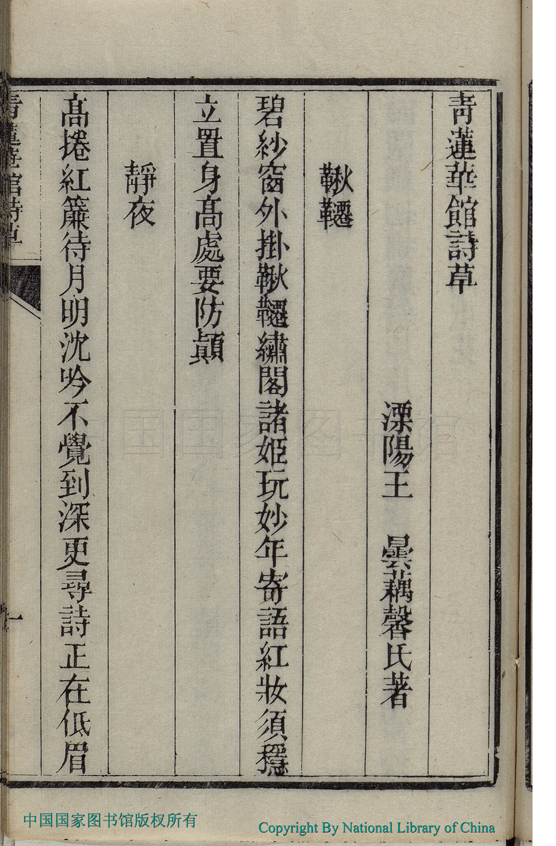 青蓮華館詩草
溧陽王　曇藕馨氏著
鞦韆
碧紗窗外掛鞦韆繡閣諸姬玩妙年寄語紅妝須穩
立置身高處要防顛
靜夜
高捲紅簾待月明沈吟不覺到深更尋詩正在低眉
青蓮華館詩草
一
中国国家图书馆
中国国家图书馆版权所有
Copyright By National Library of China